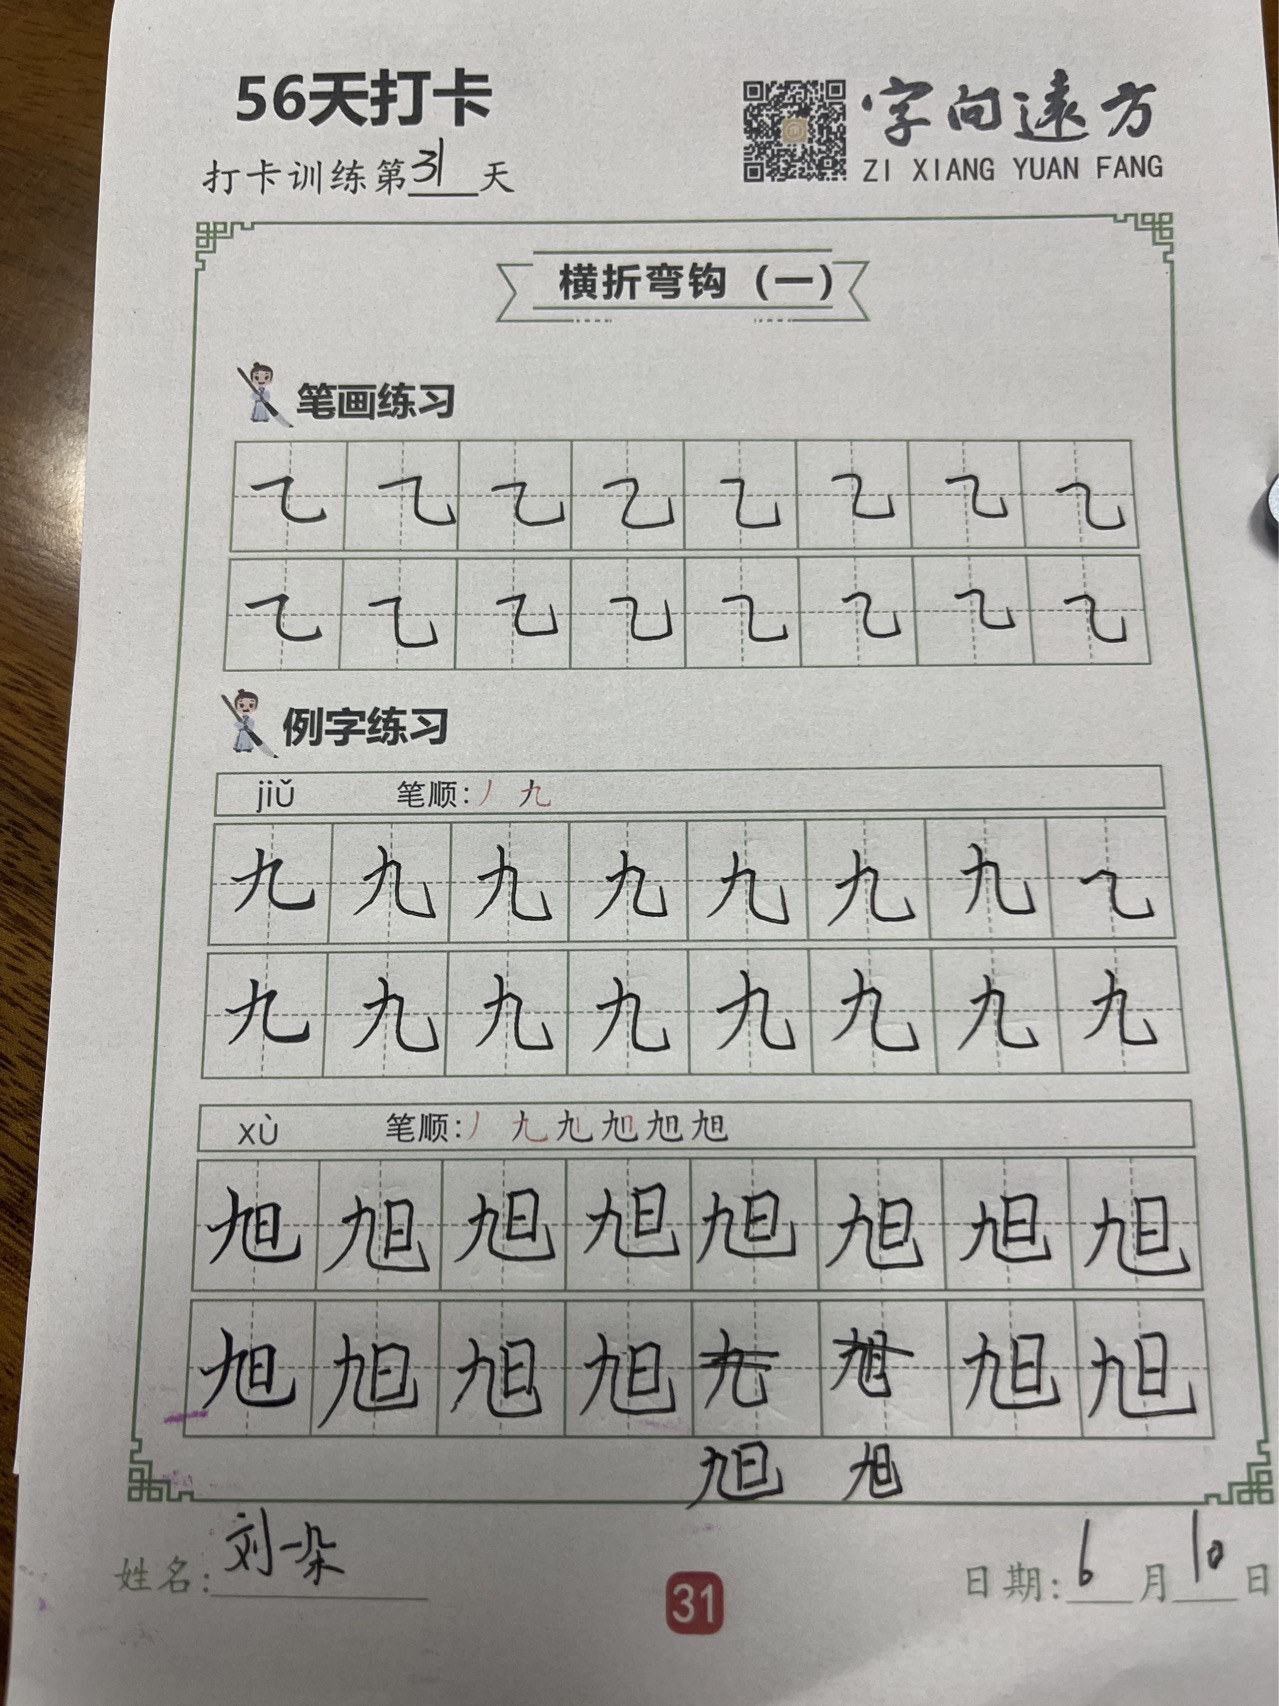 56天打卡
字向远方
ZI XIANG YUAN FANG
打卡训练第31天
横折弯钩（一）
笔画练习
乙 乙 乙 乙 乙 乙 乙 乙
乙 乙 乙 乙 乙 乙 乙 乙
例字练习
jiǔ 笔顺：丿 九
九 九 九 九 九 九 九 乙
九 九 九 九 九 九 九 九
xù 笔顺：丿 九 九 旭 旭 旭
旭 旭 旭 旭 旭 旭 旭 旭
旭 旭 旭 旭 九 旭 旭 旭
旭 旭
姓名：刘一朵
31
日期：6月10日